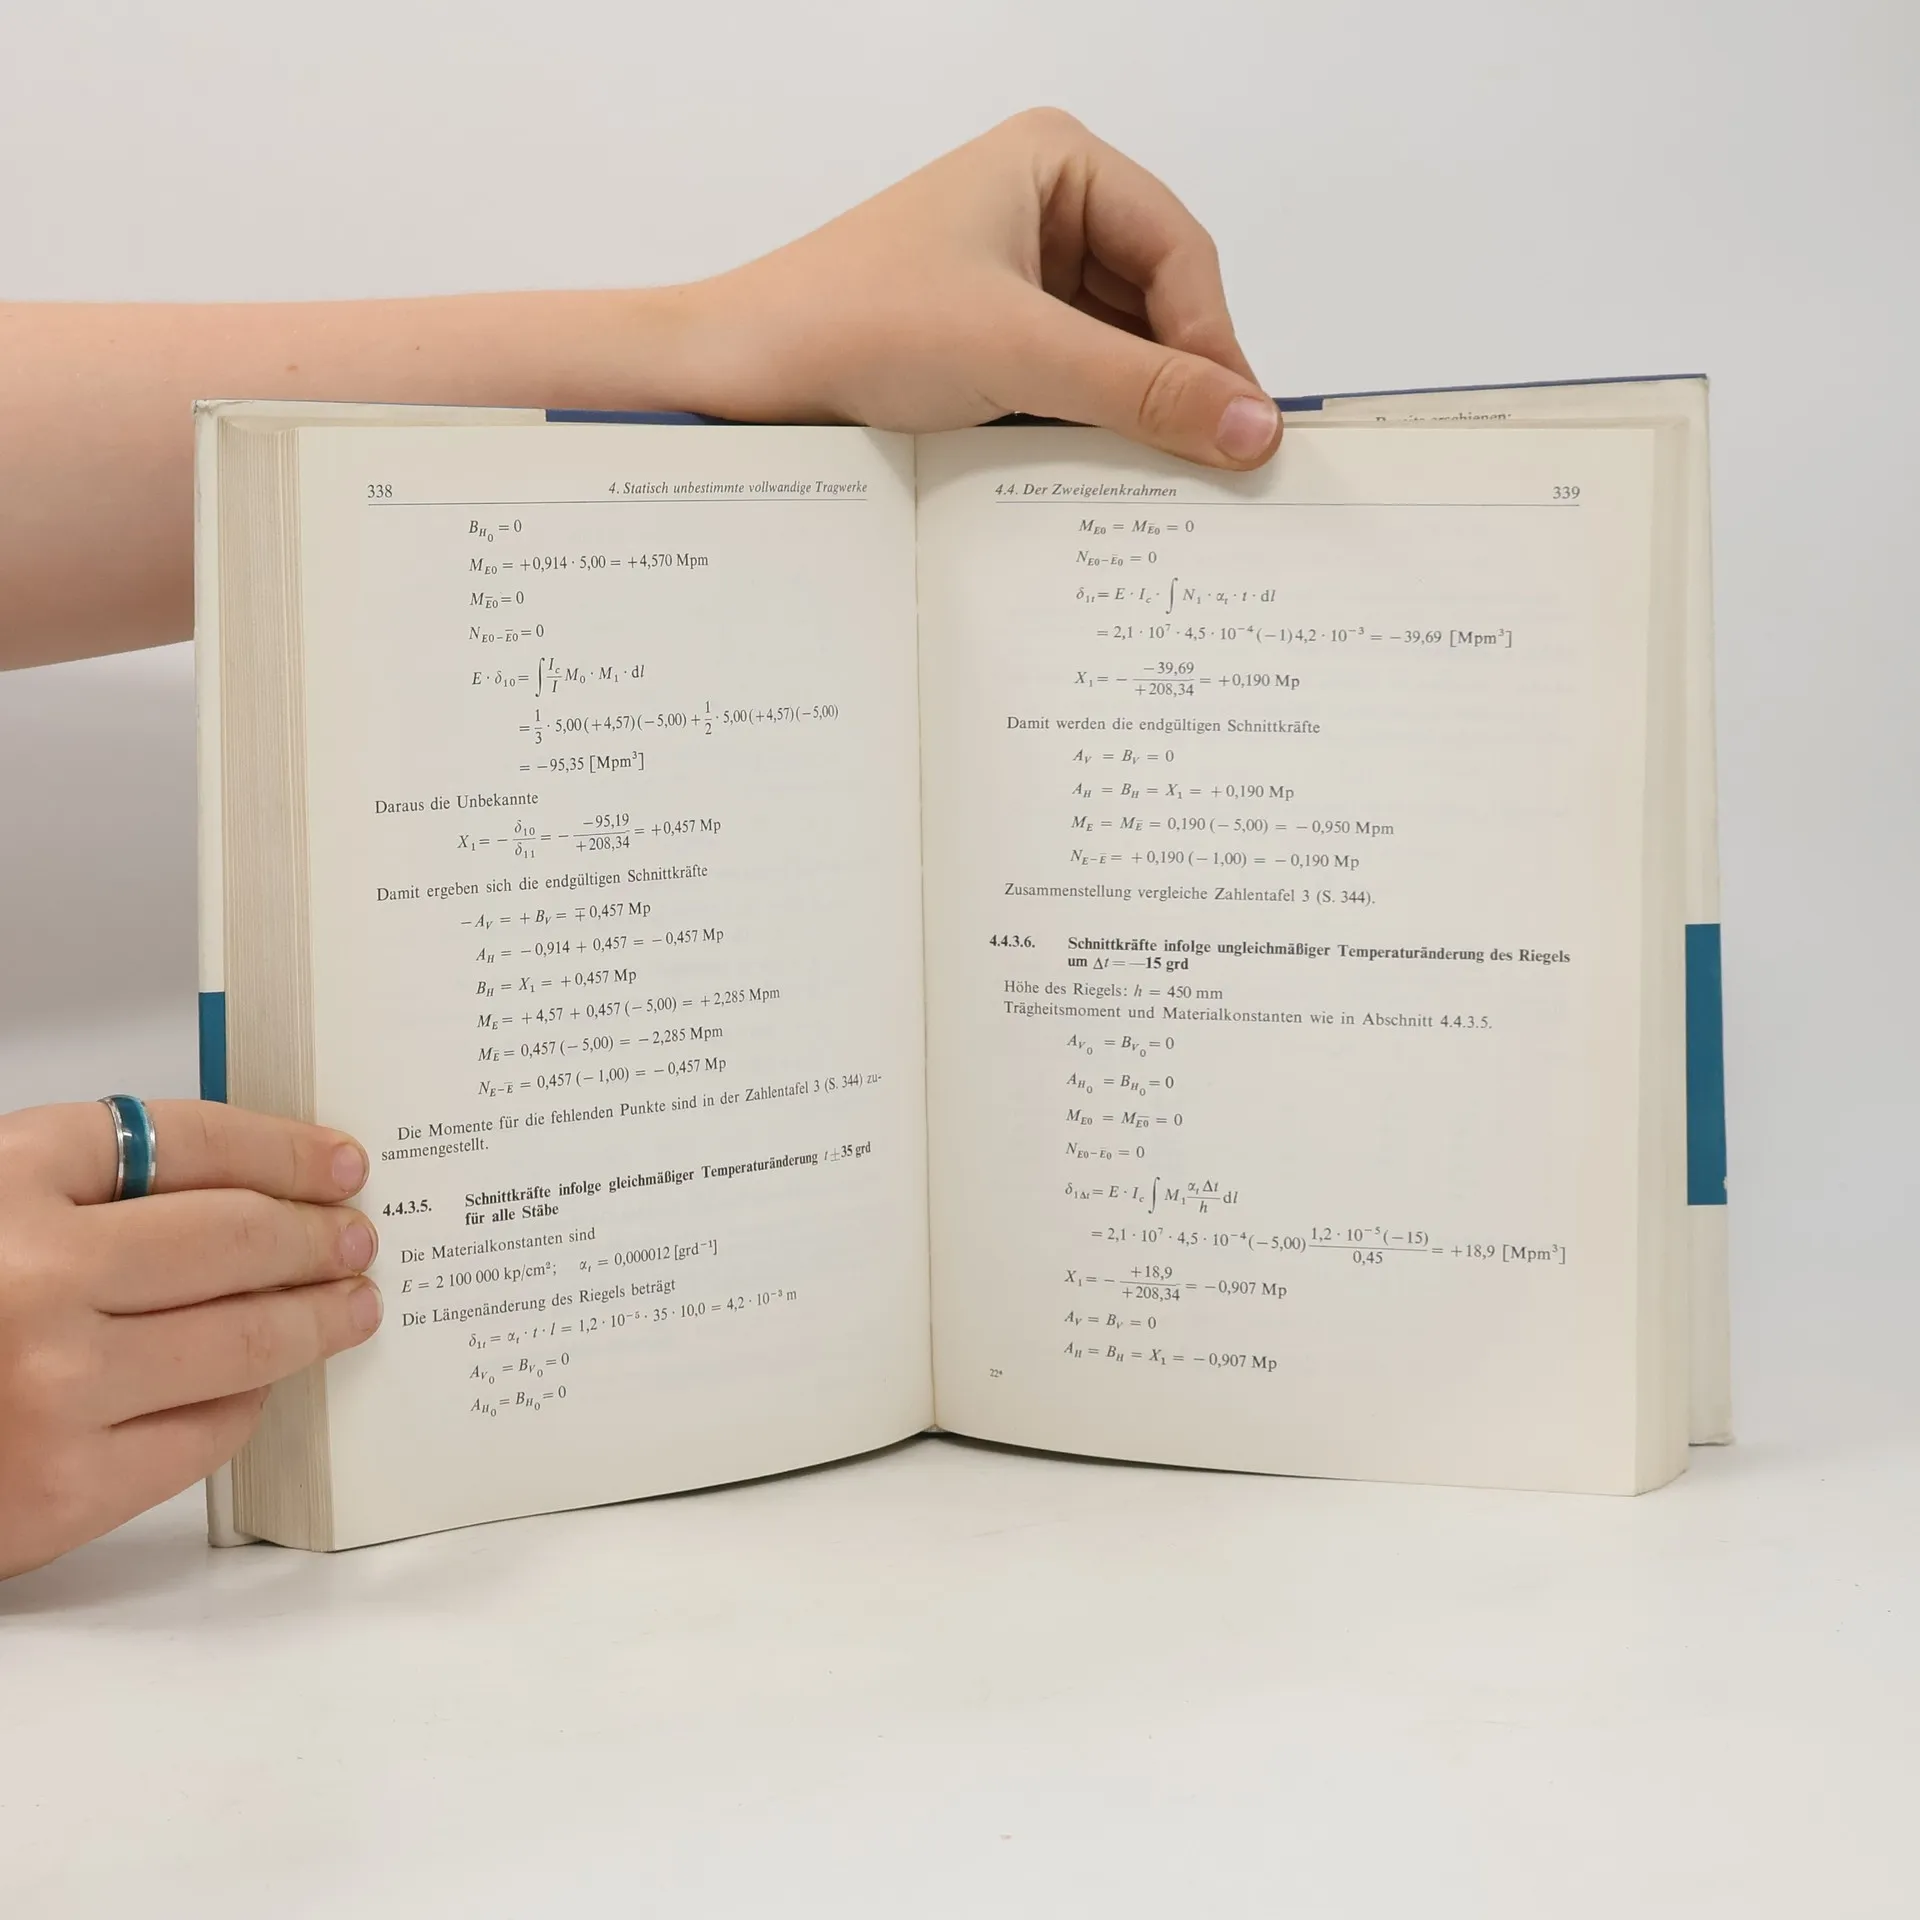 338 4. Statisch unbestimmte vollwandige Tragwerke
B_{H_0} = 0
M_{E0} = +0,914 · 5,00 = +4,570 Mpm
M_{E̅0} = 0
N_{E0−E̅0} = 0
E · δ_{10} = ∫ I_c/I M_0 · M_1 · dl
= 1/3 · 5,00(+4,57)(−5,00) + 1/2 · 5,00(+4,57)(−5,00)
= −95,35 [Mpm³]
Daraus die Unbekannte
X_1 = − δ_{10}/δ_{11} = − −95,19/+208,34 = +0,457 Mp
Damit ergeben sich die endgültigen Schnittkräfte
−A_V = +B_V = ∓0,457 Mp
A_H = −0,914 + 0,457 = −0,457 Mp
B_H = X_1 = +0,457 Mp
M_E = +4,57 + 0,457 (−5,00) = +2,285 Mpm
M_{E̅} = 0,457 (−5,00) = −2,285 Mpm
N_{E−E̅} = 0,457 (−1,00) = −0,457 Mp
Die Momente für die fehlenden Punkte sind in der Zahlentafel 3 (S. 344) zu-
sammengestellt.
4.4.3.5. Schnittkräfte infolge gleichmäßiger Temperaturänderung t ± 35 grd
für alle Stäbe
Die Materialkonstanten sind
E = 2 100 000 kp/cm²; α_t = 0,000012 [grd⁻¹]
Die Längenänderung des Riegels beträgt
δ_{1t} = α_t · t · l = 1,2 · 10⁻⁵ · 35 · 10,0 = 4,2 · 10⁻³ m
A_{V_0} = B_{V_0} = 0
A_{H_0} = B_{H_0} = 0
4.4. Der Zweigelenkrahmen 339
M_{E0} = M_{E̅0} = 0
N_{E0−E̅0} = 0
δ_{1t} = E · I_c · ∫ N_1 · α_t · t · dl
= 2,1 · 10⁷ · 4,5 · 10⁻⁴(−1)4,2 · 10⁻³ = −39,69 [Mpm³]
X_1 = − −39,69/+208,34 = +0,190 Mp
Damit werden die endgültigen Schnittkräfte
A_V = B_V = 0
A_H = B_H = X_1 = +0,190 Mp
M_E = M_{E̅} = 0,190 (−5,00) = −0,950 Mpm
N_{E−E̅} = +0,190 (−1,00) = −0,190 Mp
Zusammenstellung vergleiche Zahlentafel 3 (S. 344).
4.4.3.6. Schnittkräfte infolge ungleichmäßiger Temperaturänderung des Riegels
um Δt = —15 grd
Höhe des Riegels: h = 450 mm
Trägheitsmoment und Materialkonstanten wie in Abschnitt 4.4.3.5.
A_{V_0} = B_{V_0} = 0
A_{H_0} = B_{H_0} = 0
M_{E0} = M_{E̅0} = 0
N_{E0−E̅0} = 0
δ_{1Δt} = E · I_c ∫ M_1 α_t Δt/h dl
= 2,1 · 10⁷ · 4,5 · 10⁻⁴(−5,00) 1,2 · 10⁻⁵(−15)/0,45 = +18,9 [Mpm³]
X_1 = − +18,9/+208,34 = −0,907 Mp
A_V = B_V = 0
A_H = B_H = X_1 = −0,907 Mp
22*